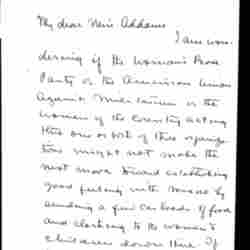 My dear Miss Addams
I am won-
dering if the Woman's Peace
Party or the American Union
Against Militarism or the
women of the Country acting
thro one or both of these organiza-
tions might not make the
next move toward establishing
good feeling with Mexico by
sending a few carloads of food
and clothing to the women &
children down there. If